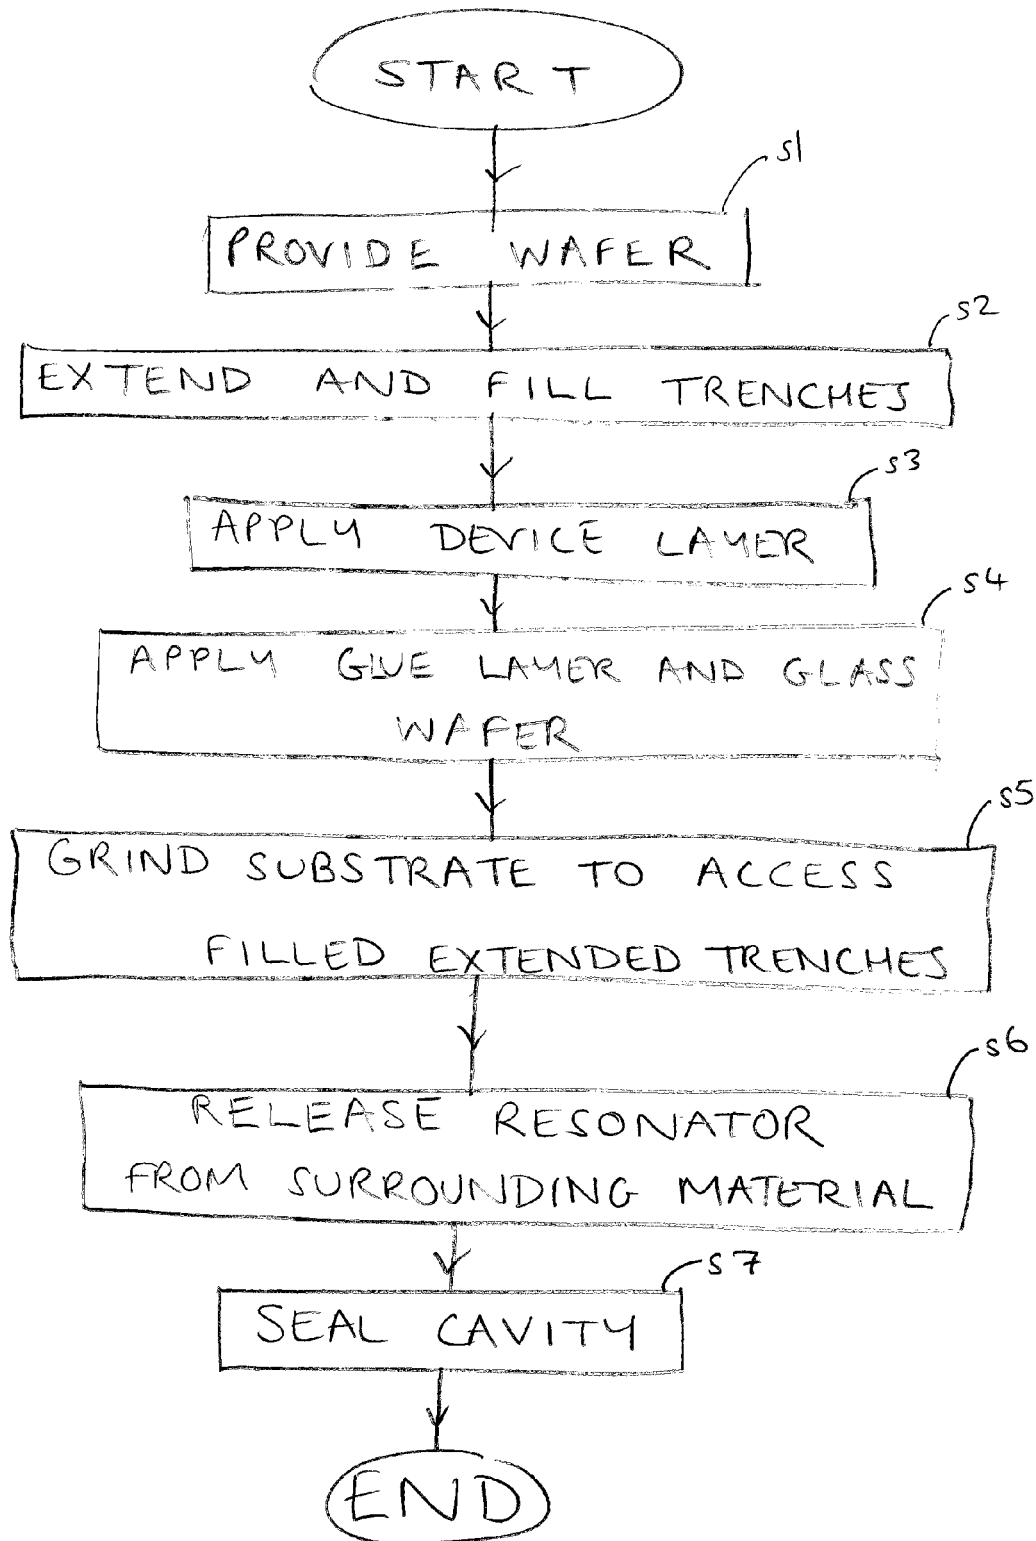 START
s1
PROVIDE WAFER
s2
EXTEND AND FILL TRENCHES
s3
APPLY DEVICE LAYER
s4
APPLY GLUE LAYER AND GLASS
WAFER
s5
GRIND SUBSTRATE TO ACCESS
FILLED EXTENDED TRENCHES
s6
RELEASE RESONATOR
FROM SURROUNDING MATERIAL
s7
SEAL CAVITY
END